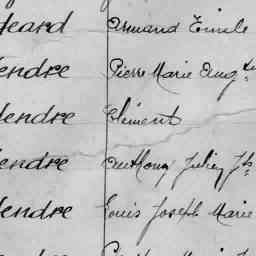 Heard Armand Emile
endre Pierre Marie Aug.te
endre Clément
endre Anthony Julien Jh
endre Louis Joseph Marie
endre